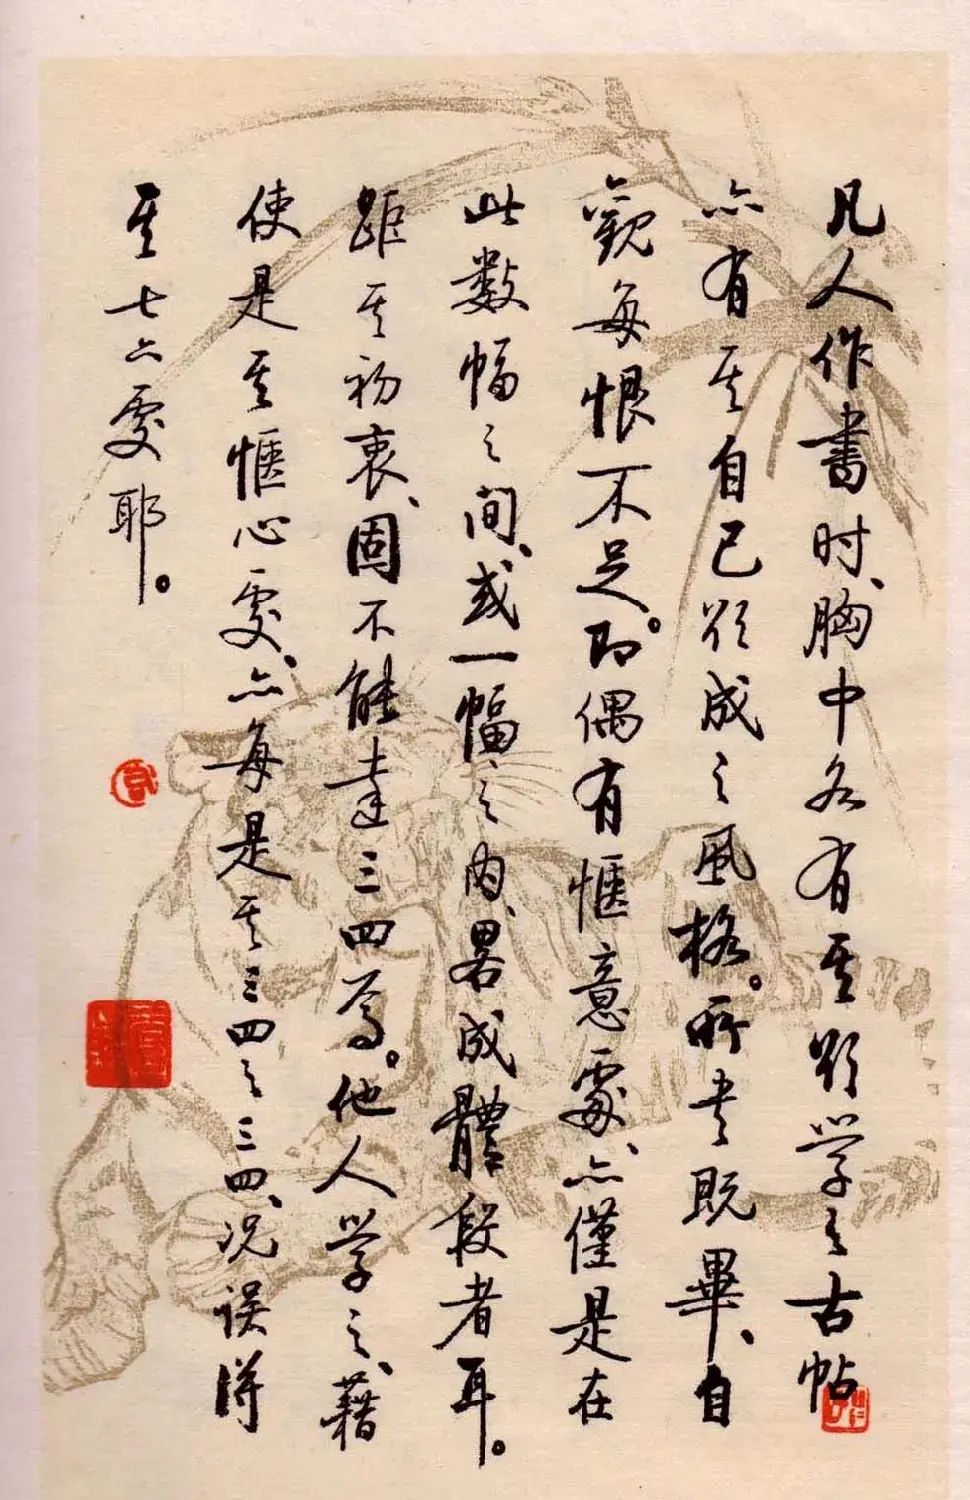 凡人作書时、胸中各有其欲学之古帖
亦有其自己欲成之風格。所書既畢、自
觀每恨不足。即偶有惬意處、亦僅是在
此数幅之间、或一幅之内、畧成體段者耳。
距其初衷、固不能達三四焉。他人学之、藉
使是其惬心處、亦每是其三四之三四、况误得
其七六處耶。